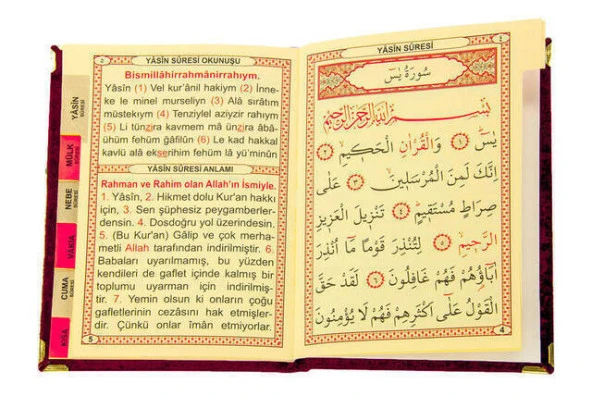 YÂSİN SÛRESİ
سُورَةُ يٰسٓ
بِسْمِ اللهِ الرَّحْمٰنِ الرَّحِيمِ
يٰسٓ ﴿١﴾ وَالْقُرْاٰنِ الْحَكِيمِ ﴿٢﴾
اِنَّكَ لَمِنَ الْمُرْسَلِينَ ﴿٣﴾ عَلٰى
صِرَاطٍ مُسْتَقِيمٍ ﴿٤﴾ تَنْزِيلَ الْعَزِيزِ
الرَّحِيمِ ﴿٥﴾ لِتُنْذِرَ قَوْمًا مَٓا اُنْذِرَ
اٰبَٓاؤُهُمْ فَهُمْ غَافِلُونَ ﴿٦﴾ لَقَدْ حَقَّ
الْقَوْلُ عَلٰٓى اَكْثَرِهِمْ فَهُمْ لَا يُؤْمِنُونَ
4
YÂSİN SÛRESİ OKUNUŞU
Bismillâhirrahmânirrahıym.
Yâsîn (1) Vel kur'ânil hakiym (2) İnne-
ke le minel murseliyn (3) Alâ sırâtım
müstekıym (4) Tenziylel aziyzir rahıym
(5) Li tünzira kavmem mâ ünzira âbâ-
ühüm fehüm ğâfilûn (6) Le kad hakkal
kavlü alâ ekserihim fehüm lâ yü'minûn
YÂSİN SÛRESİ ANLAMI
Rahman ve Rahim olan Allah'ın İsmiyle.
1. Yâsîn, 2. Hikmet dolu Kur'an hakkı
için, 3. Sen şüphesiz peygamberler-
densin. 4. Dosdoğru yol üzerindesin.
5. (Bu Kur'an) Gâlip ve çok merha-
metli Allah tarafından indirilmiştir. 6.
Babaları uyarılmamış, bu yüzden
kendileri de gaflet içinde kalmış bir
toplumu uyarman için indirilmiş-
tir. 7. Yemin olsun ki onların çoğu
gafletlerinin cezasını hak etmişler-
dir. Çünkü onlar îmân etmiyorlar.
5
YÂSİN
SÛRESİ
MÜLK
SÛRESİ
NEBE
SÛRESİ
VÂKIA
CUMA
SÛRESİ
KISA